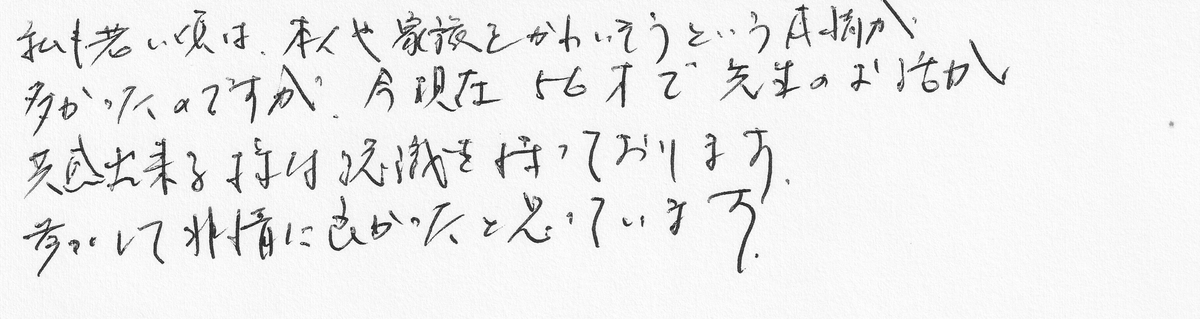 私も若い頃は、本人や家族をかわいそうという同情が
多かったのですが、今現在56才で先生のお話が
共感出来る様な認識を持っております。
参加して非情に良かったと思っています。